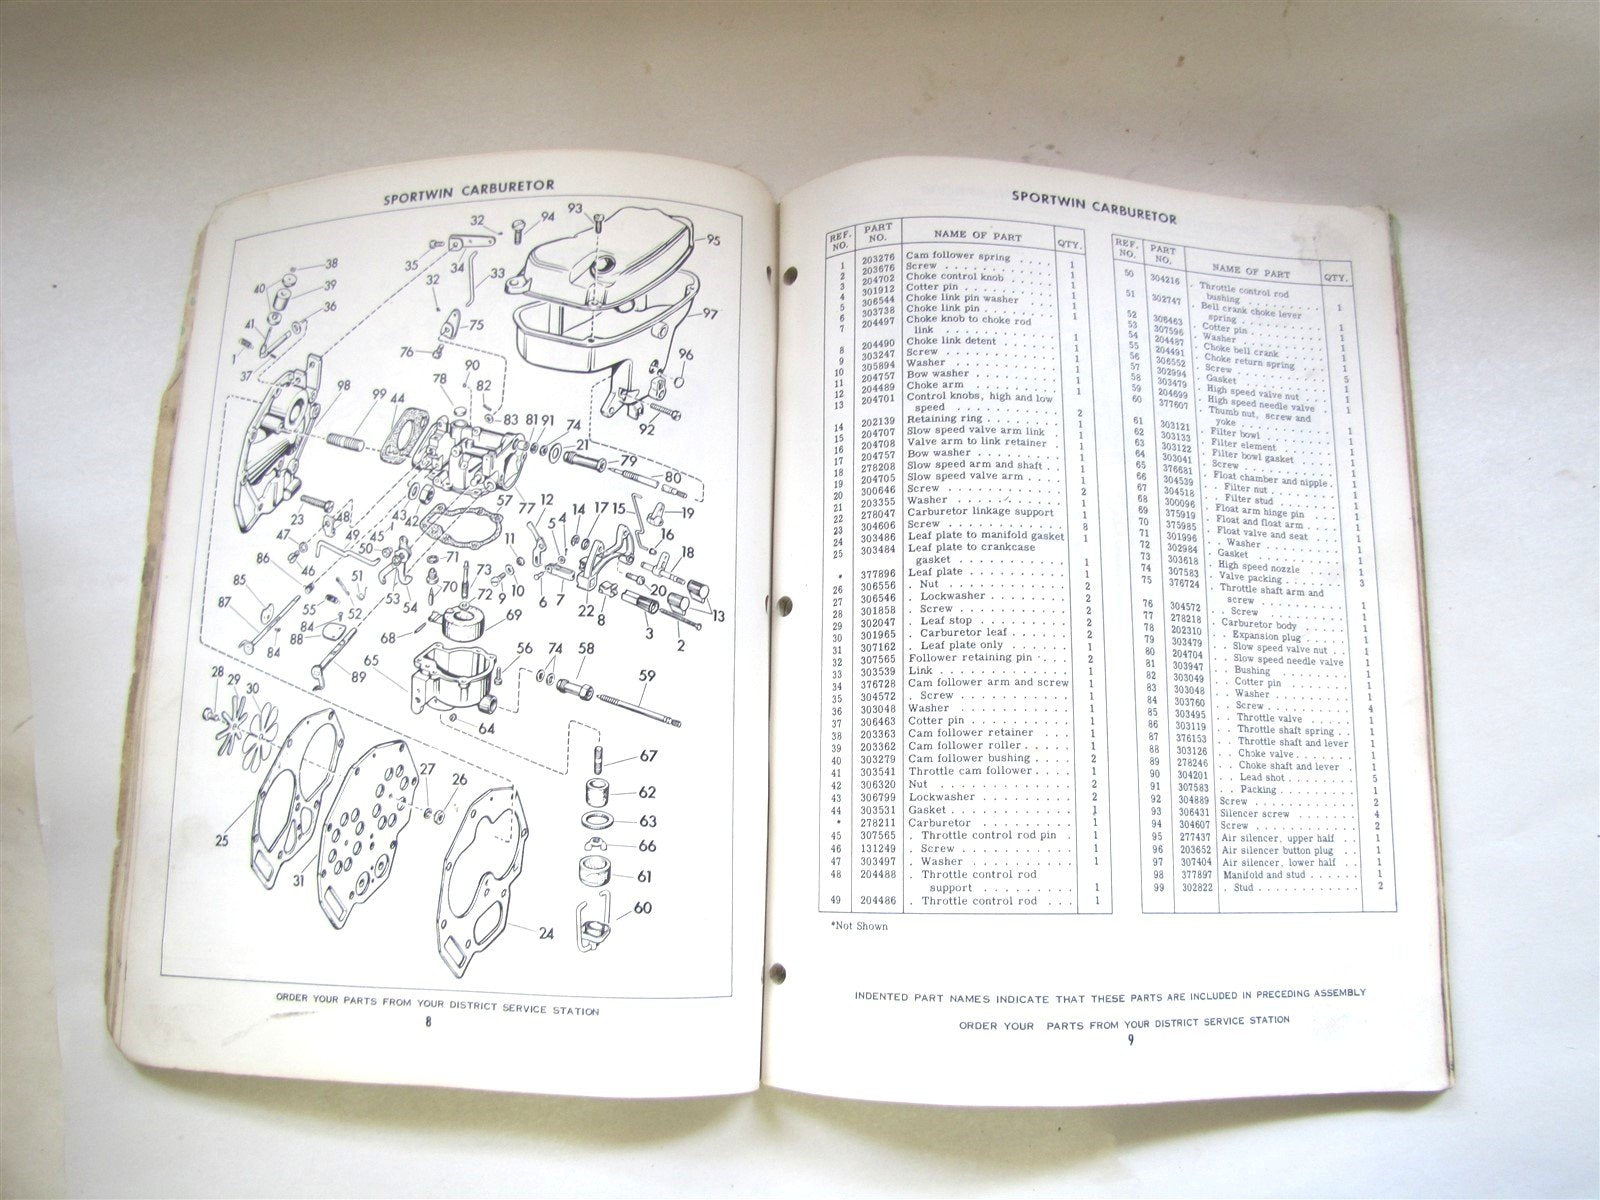 SPORTWIN CARBURETOR
32
94
93
95
38
35
34
33
40
39
32
36
97
41
75
1
76
90
96
37
98
78
82
99
44
83 81 91
74
92
21
79
80
57
12
23
48
43
42
77
5
4
14
17
15
19
47
49
45
16
86
46
50
71
11
18
85
51
73
87
55
53
54
70
72
9
10
6
7
22
8
20
13
84
52
69
3
2
88
68
84
65
56
74
58
59
28
29
30
89
64
67
27
26
62
63
25
66
31
61
60
24
ORDER YOUR PARTS FROM YOUR DISTRICT SERVICE STATION
8
SPORTWIN CARBURETOR
REF. NO. PART NO. NAME OF PART QTY.
1 203276 Cam follower spring 1
2 203676 Screw 1
3 204702 Choke control knob 1
4 301912 Cotter pin 1
5 306544 Choke link pin washer 1
6 303738 Choke link pin 1
7 204497 Choke knob to choke rod
link 1
8 204490 Choke link detent 1
9 303247 Screw 1
10 305894 Washer 1
11 204757 Bow washer 1
12 204489 Choke arm 1
13 204701 Control knobs, high and low
speed 2
14 202139 Retaining ring 1
15 204707 Slow speed valve arm link 1
16 204708 Valve arm to link retainer 1
17 204757 Bow washer 1
18 278208 Slow speed arm and shaft 1
19 204705 Slow speed valve arm 1
20 300646 Screw 2
21 203355 Washer 1
22 278047 Carburetor linkage support 1
23 304606 Screw 8
24 303486 Leaf plate to manifold gasket 1
25 303484 Leaf plate to crankcase
gasket 1
* 377896 Leaf plate 1
26 306556 . Nut 2
27 306546 . Lockwasher 2
28 301858 . Screw 2
29 302047 . Leaf stop 2
30 301965 . Carburetor leaf 2
31 307162 . Leaf plate only 1
32 307565 Follower retaining pin 2
33 303539 Link 1
34 376728 Cam follower arm and screw 1
35 304572 . Screw 1
36 303048 Washer 1
37 306463 Cotter pin 1
38 203363 Cam follower retainer 1
39 203362 Cam follower roller 1
40 303279 Cam follower bushing 2
41 303541 Throttle cam follower 1
42 306320 Nut 2
43 306799 Lockwasher 2
44 303531 Gasket 1
* 278211 Carburetor 1
45 307565 . Throttle control rod pin 1
46 131249 . Screw 1
47 303497 . Washer 1
48 204488 . Throttle control rod
support 1
49 204486 . Throttle control rod 1
*Not Shown
REF. NO. PART NO. NAME OF PART QTY.
50 304216 . Throttle control rod
bushing 1
51 302747 . Bell crank choke lever
spring 1
52 306463 . Cotter pin 1
53 307596 . Washer 1
54 204487 . Choke bell crank 1
55 204491 . Choke return spring 1
56 306552 . Screw 5
57 302994 . Gasket 1
58 303479 . High speed valve nut 1
59 204699 . High speed needle valve 1
60 377607 . Thumb nut, screw and
yoke 1
61 303121 . Filter bowl 1
62 303133 . Filter element 1
63 303122 . Filter bowl gasket 1
64 303041 . Screw 1
65 376681 . Float chamber and nipple 1
66 304539 . . Filter nut 1
67 304518 . . Filter stud 1
68 300096 . Float arm hinge pin 1
69 375919 . Float and float arm 1
70 375985 . Float valve and seat 1
71 301996 . . Washer 1
72 302984 . Gasket 1
73 303618 . High speed nozzle 1
74 307583 . Valve packing 3
75 376724 . Throttle shaft arm and
screw 1
76 304572 . . Screw 1
77 278218 . Carburetor body 1
78 202310 . . Expansion plug 1
79 303479 . . Slow speed valve nut 1
80 204704 . . Slow speed needle valve 1
81 303947 . . Bushing 1
82 303049 . . Cotter pin 1
83 303048 . . Washer 1
84 303760 . . Screw 4
85 303495 . . Throttle valve 1
86 303119 . . Throttle shaft spring 1
87 376153 . . Throttle shaft and lever 1
88 303126 . . Choke valve 1
89 278246 . . Choke shaft and lever 1
90 304201 . . Lead shot 5
91 307583 . . Packing 1
92 304889 Screw 2
93 306431 Silencer screw 4
94 304607 Screw 2
95 277437 Air silencer, upper half 1
96 203652 Air silencer button plug 1
97 307404 Air silencer, lower half 1
98 377897 Manifold and stud 1
99 302822 . Stud 2
INDENTED PART NAMES INDICATE THAT THESE PARTS ARE INCLUDED IN PRECEDING ASSEMBLY
ORDER YOUR PARTS FROM YOUR DISTRICT SERVICE STATION
9